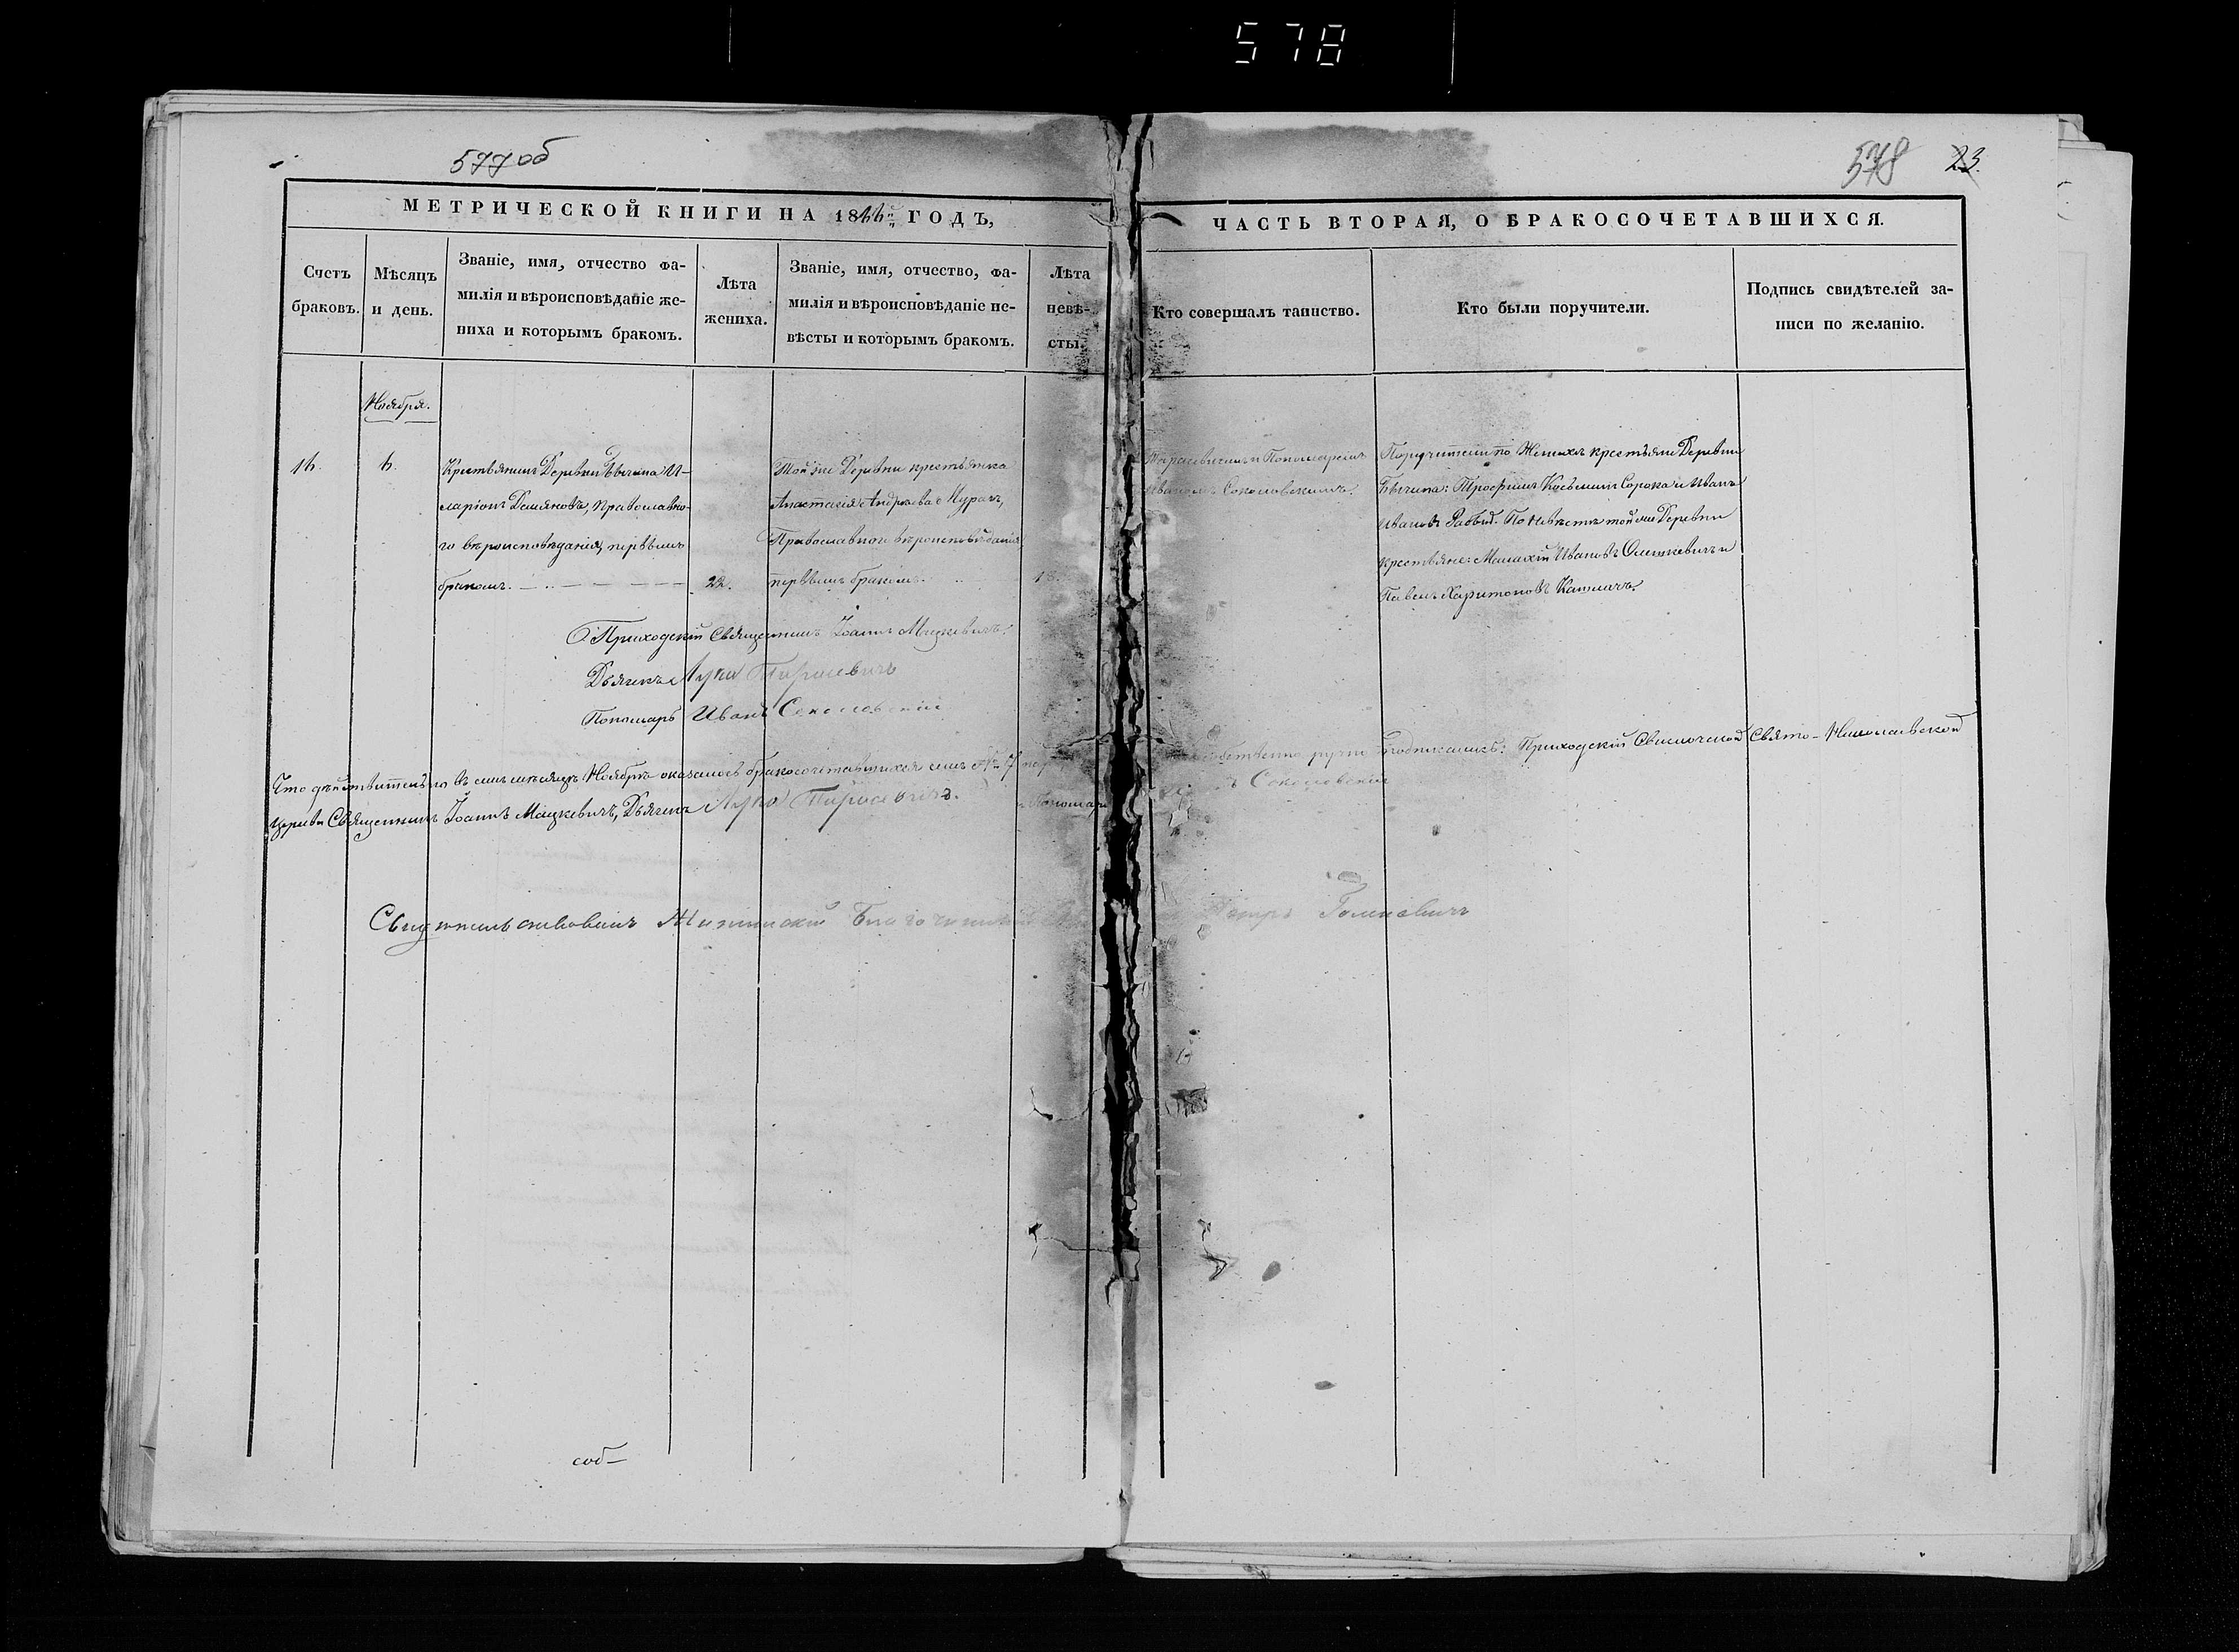 578
577 об
578 23.
МЕТРИЧЕСКОЙ КНИГИ НА 1844й ГОДЪ,
ЧАСТЬ ВТОРАЯ, О БРАКОСОЧЕТАВШИХСЯ.
Счетъ браковъ.
Мѣсяцъ и день.
Званіе, имя, отчество фа-
милія и вѣроисповѣданіе же-
ниха и которымъ бракомъ.
Лѣта
жениха.
Званіе, имя, отчество, фа-
милія и вѣроисповѣданіе не-
вѣсты и которымъ бракомъ.
Лѣта
невѣ-
сты.
Кто совершалъ таинство.
Кто были поручители.
Подпись свидѣтелей за-
писи по желанію.
Ноября.
14.
4.
Крестьянинъ Деревни И-
ларіонъ Демяновъ, Православно-
го вѣроисповѣданія, первымъ
бракомъ.
22.
Той же Деревни крестьянка
Анастасія Андреева Курачъ,
Православного вѣроисповѣданія
первымъ бракомъ.
Тарасевичемъ и Пономаремъ
Иваномъ Соколовскимъ.
Поручители по Женихѣ крестьяне Деревни
Трофимъ Сорока и Иванъ
Ивановъ. По невѣстѣ той же Деревни
крестьяне: Малахій Ивановъ Олешкевичъ и
Павелъ Харитоновъ
Приходскій Священникъ Іоаннъ Мацкевичъ.
Дьячекъ Лука Тарасевичъ
Пономарь Иванъ Соколовскій
Что дѣйствительно въ семъ мѣсяцѣ Ноябрѣ оказалось бракосочетавшихся
подписались: Приходскій Свислочской Свято-Николаевской
Церкви Священникъ Іоаннъ Мацкевичъ, Дьячекъ Лука Тарасевичъ.
и Пономарь Соколовскій
Свидѣтельствовалъ Благочинный
соб-